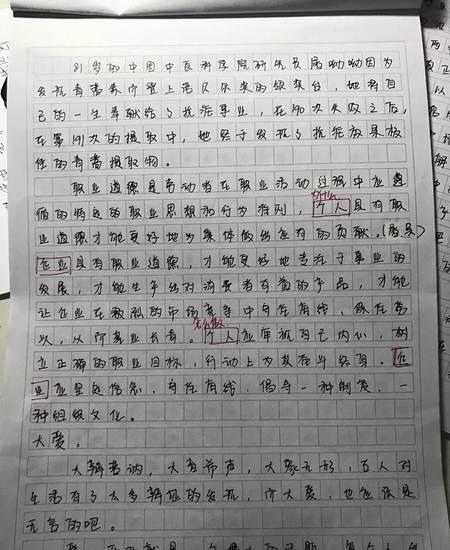 81岁的中国中医科学院研究员屠呦呦因为
发现青蒿素而登上诺贝尔奖的领奖台,她将自
己的一生奉献给了抗疟事业,在190次失败之后,
在第191次的提取中,她终于发现了抗疟效果极
佳的青蒿提取物。
职业道德是劳动者在职业活动过程中应遵
循的特定的职业思想和行为准则,个人具有职
业道德才能更好地为集体做出应有的贡献,
企业具有职业道德,才能更好地专注于事业的
发展,才能生产出对消费者有益的产品,才能
让企业在激烈的市场竞争中守住底线,
以,从而基业长青。个人应审视自己内心,树
立正确的职业目标,行动上为其奋斗终身,企
业应坚定信念,守住底线,倡导一种制度,一
种组织文化。
大爱。
大辩若讷,大音希声,大象无形,古人对
生活有了太多辩证的发现,而大爱,也应该是
无言的吧。